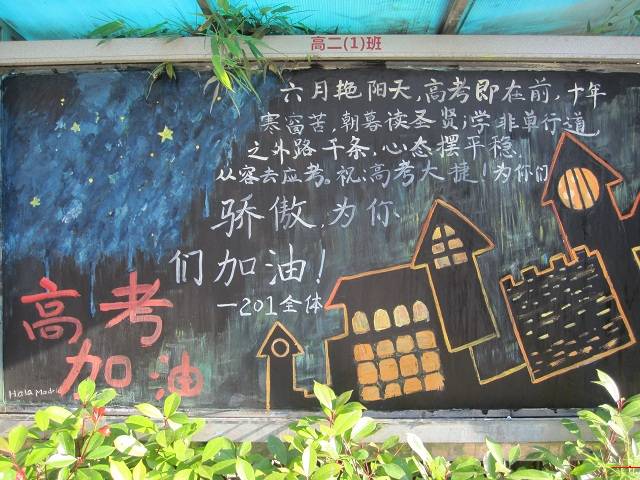 高二(1)班
六月艳阳天,高考即在前,十年
寒窗苦,朝暮读圣贤;学非单行道
之外路千条,心态摆平稳,
从容去应考。祝:高考大捷!为你们
骄傲,为你
们加油!
—201全体
高考
加油
Hala Madrid